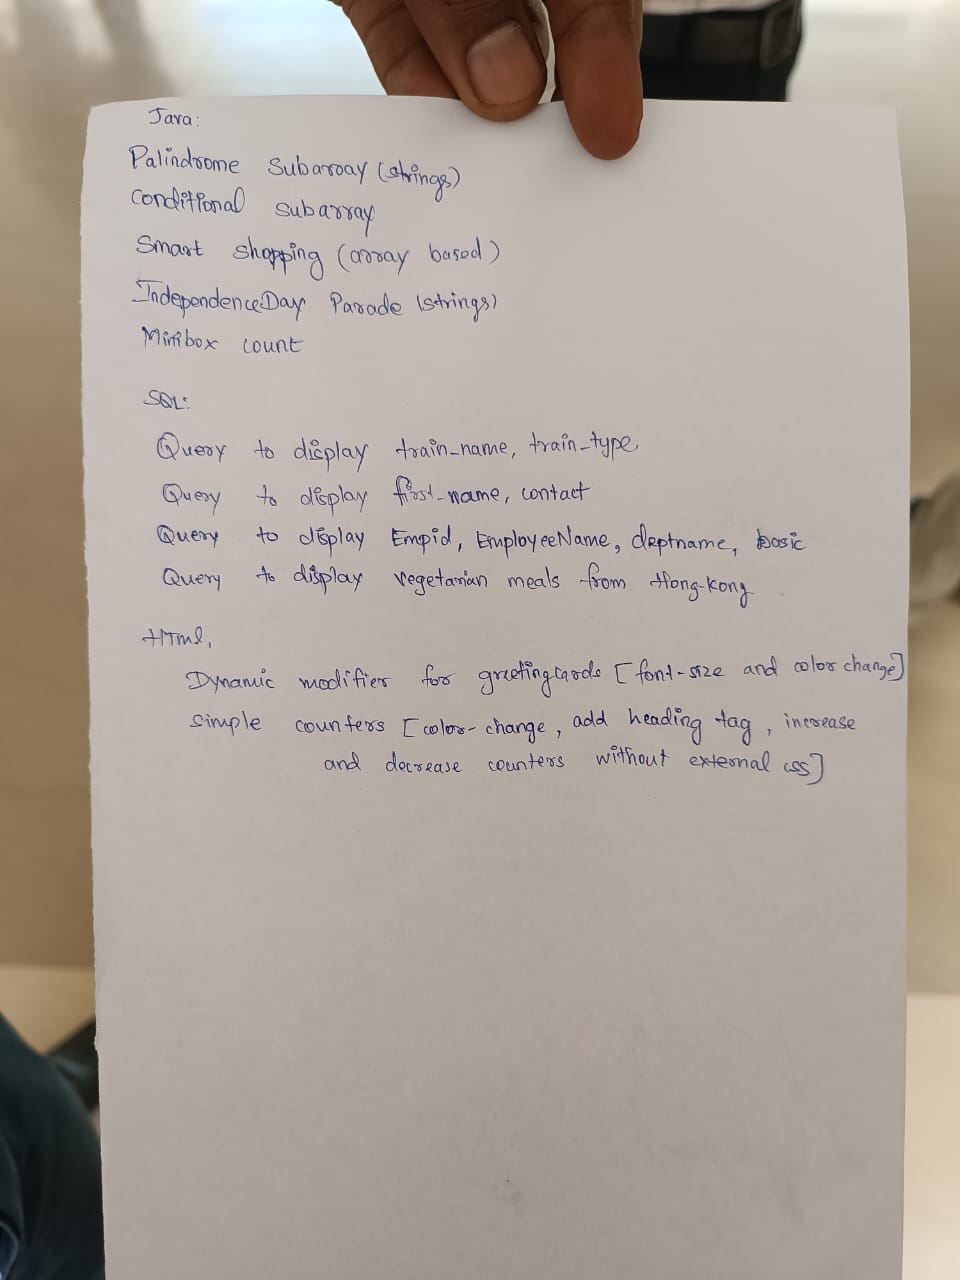 Java:
Palindrome Subarray (strings)
Conditional subarray
Smart shopping (array based)
IndependenceDay Parade (strings)
Minibox count
SQL:
Query to display train_name, train_type
Query to display first_name, contact
Query to display Empid, EmployeeName, deptname, basic
Query to display vegetarian meals from Hong-Kong
HTml,
Dynamic modifier for greetingcards [font-size and color change]
Simple counters [color-change, add heading tag, increase
and decrease counters without external css]